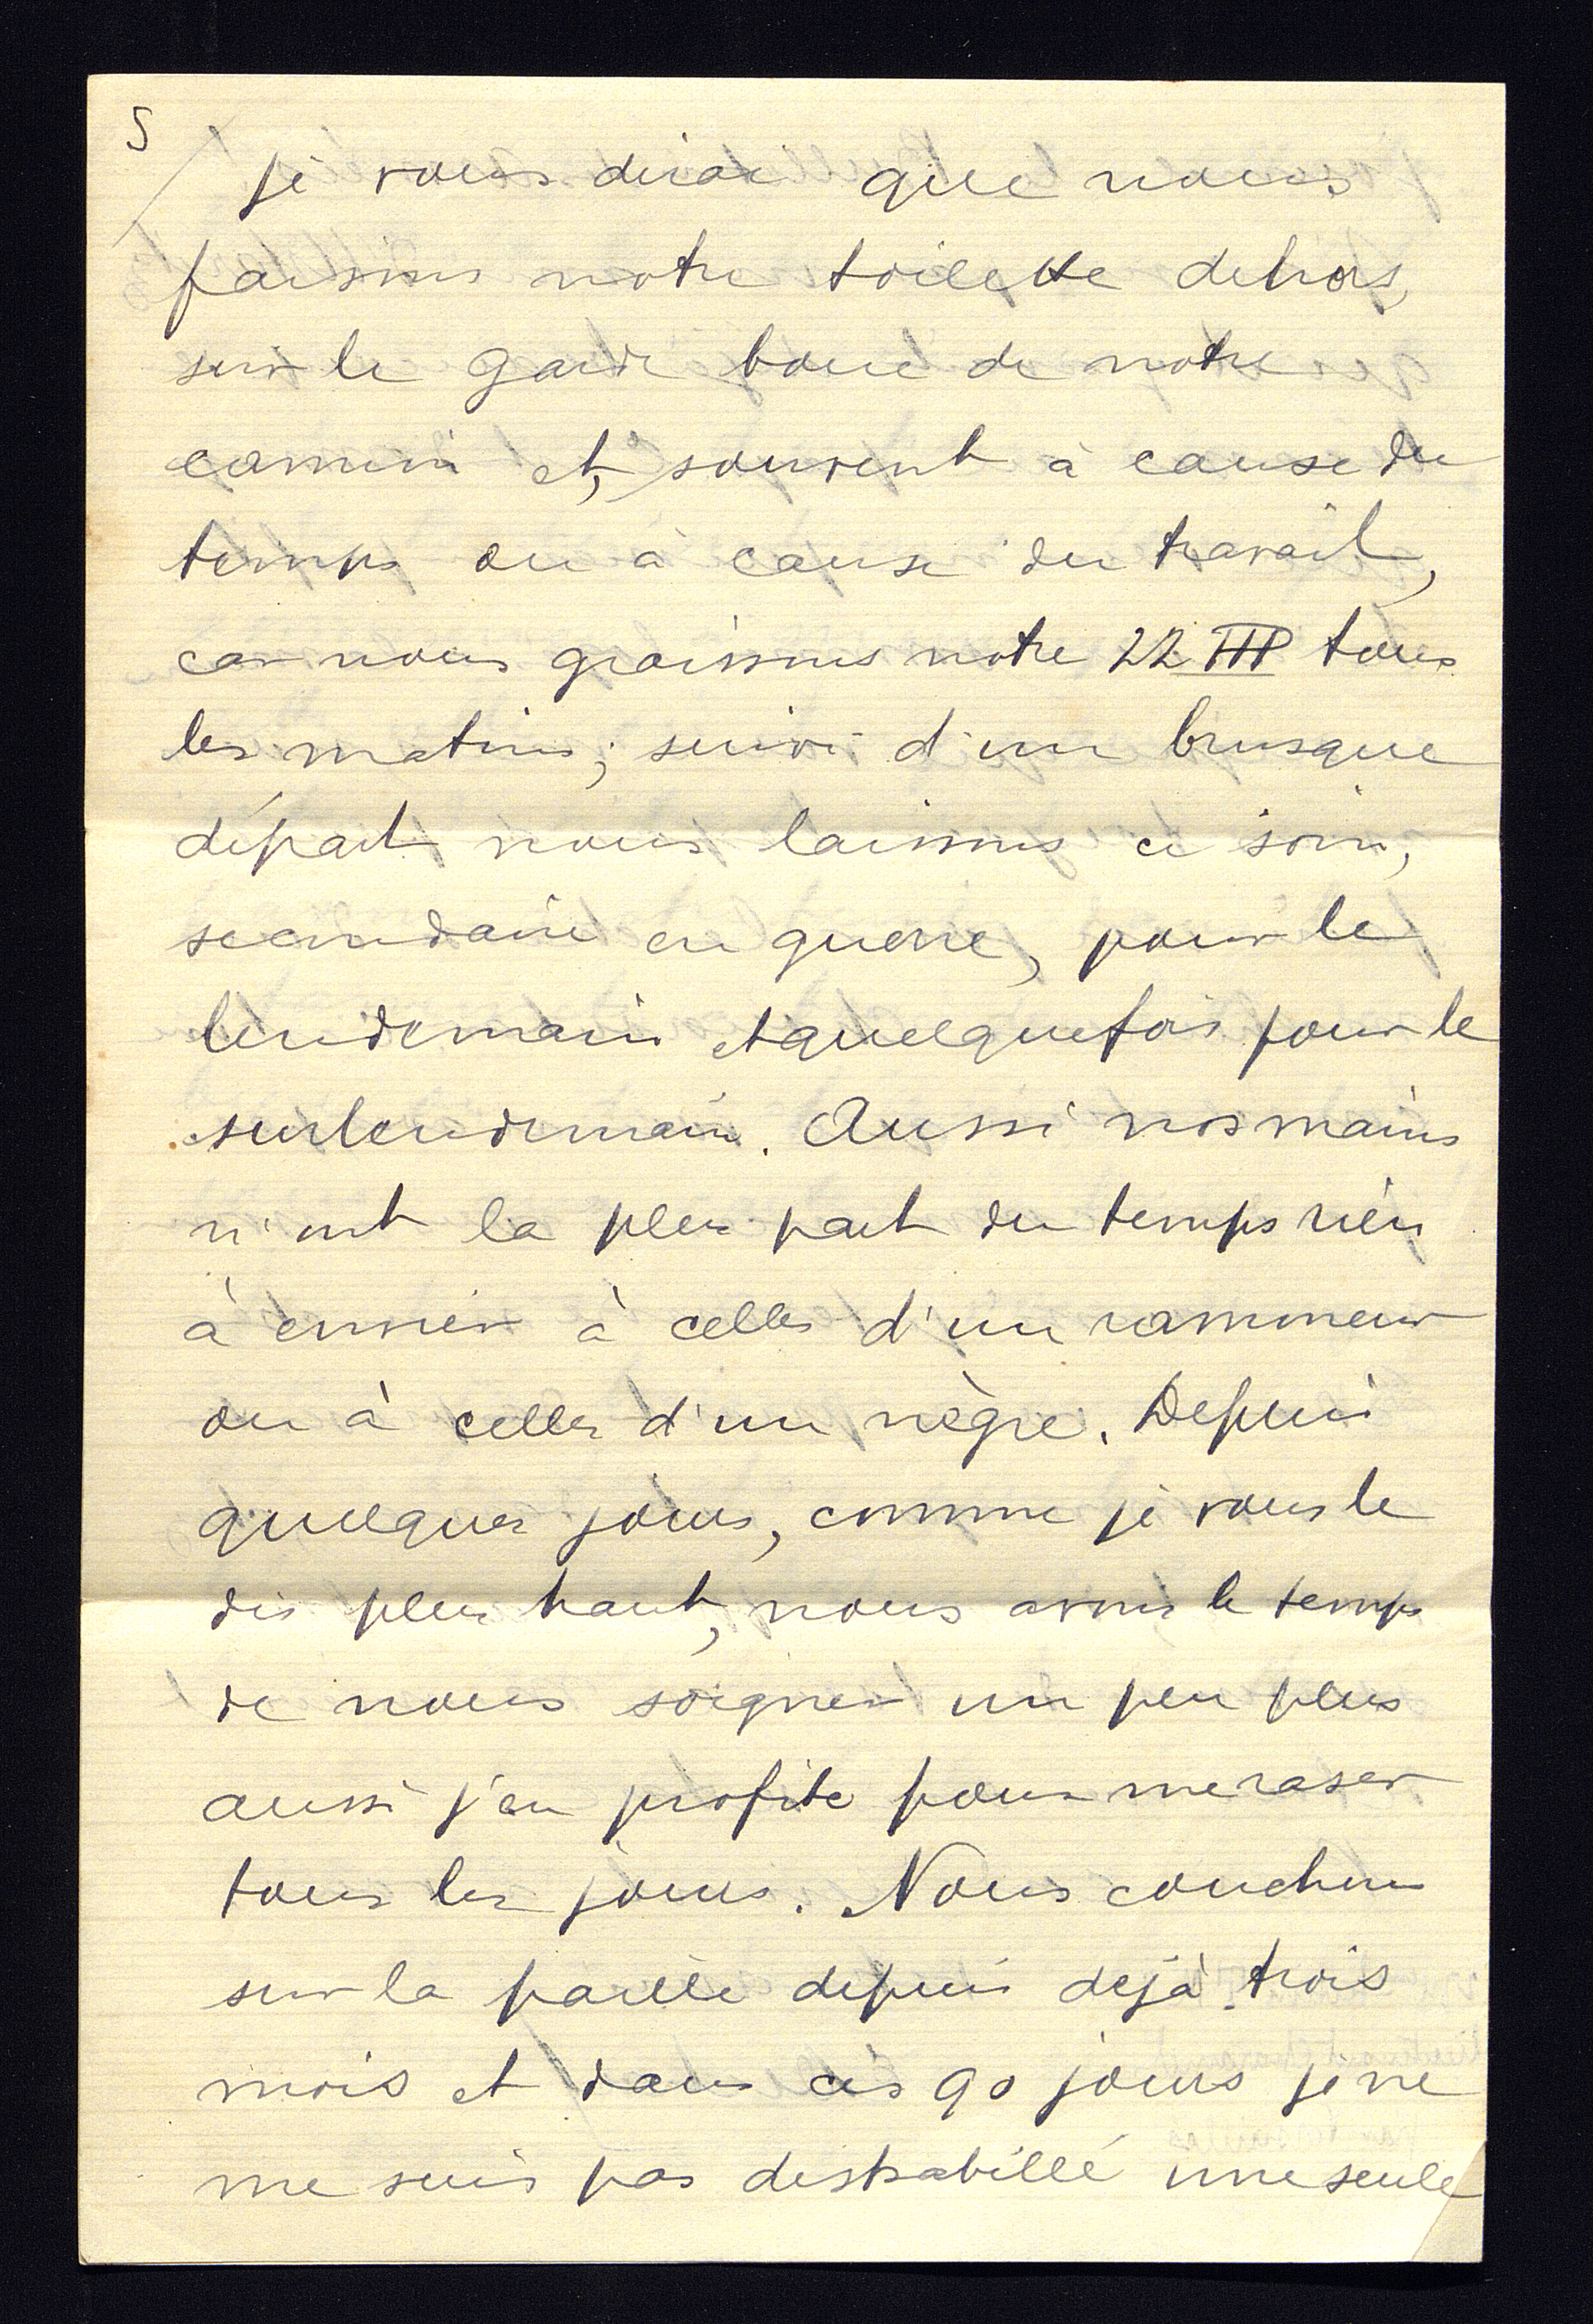 5
je vous dirai que nous
faisons notre toilette dehors,
sur le garde boue de notre
camion et, souvent à cause du
temps ou à cause du travail,
car nous graissons notre 22 HP tous
les matins; suivi d'un brusque
départ nous laissons ce soin,
secondaire en guerre, pour le
lendemain et quelquefois pour le
surlendemain. Aussi nos mains
n'ont la plus part du temps rien
à envier à celles d'un rammeur
ou à celles d'un nègre. Depuis
quelques jours, comme je vous le
dis plus haut, nous avons le temps
de nous soigner un peu plus
aussi j'en profite pour me raser
tous les jours. Nous couchons
sur la paille depuis dejà trois
mois et dans ces 90 jours je ne
me suis pas deshabillé une seule